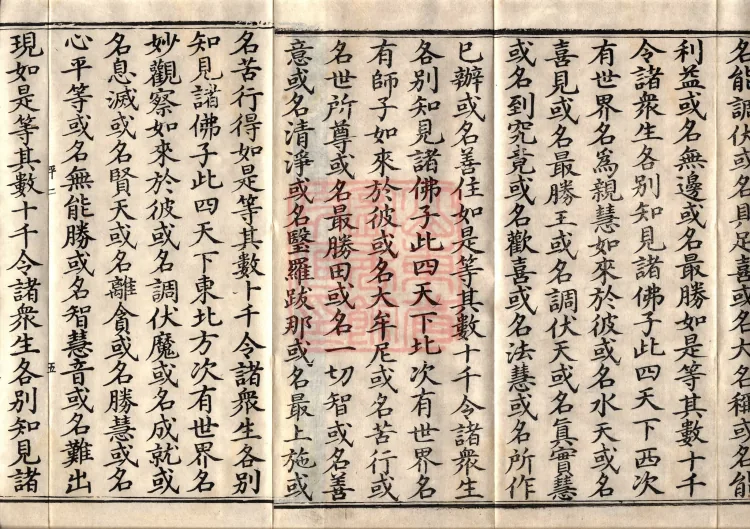 名能調伏或名具足喜或名大名稱或名能
利益或名無邊或名最勝如是等其數十千
令諸衆生各別知見諸佛子此四天下西次
有世界名爲親慧如來於彼或名水天或名
喜見或名最勝王或名調伏天或名眞實慧
或名到究竟或名歡喜或名法慧或名所作
已辦或名善住如是等其數十千令諸衆生
各別知見諸佛子此四天下北次有世界名
有師子如來於彼或名大牟尼或名苦行或
名世所尊或名最勝田或名一切智或名善
意或名清淨或名瑿羅跋那或名最上施或
名苦行得如是等其數十千令諸衆生各別
知見諸佛子此四天下東北方次有世界名
妙觀察如來於彼或名調伏魔或名成就或
名息滅或名賢天或名離貪或名勝慧或名
心平等或名無能勝或名智慧音或名難出
平二 五
現如是等其數十千令諸衆生各別知見諸